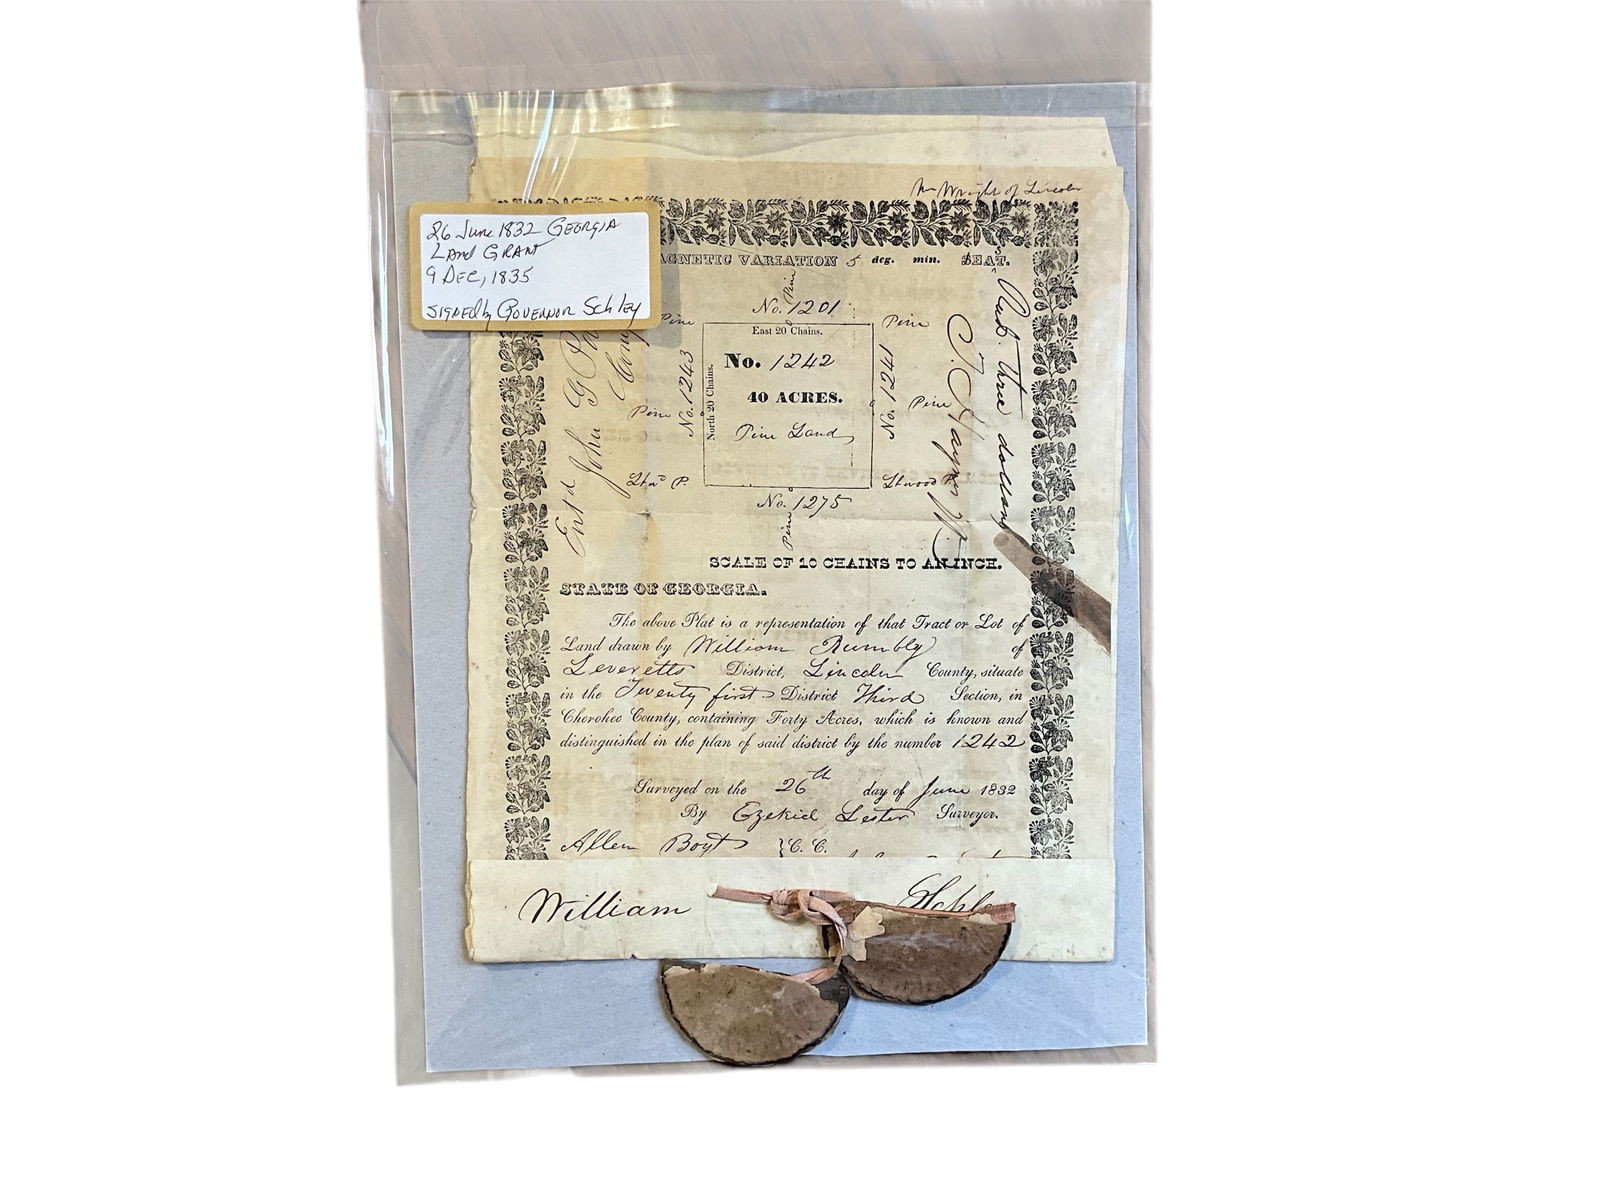 26 June 1832 GEORGIA
Land GRANT
9 DEC, 1835
SIGNED by GOVERNOR Schley
Wright of Lincoln
AGNETIC VARIATION 5 deg. min. EAT.
Pine
No. 1201
Pine
Pine
East 20 Chains.
North 20 Chains.
No. 1242
40 ACRES.
Pine Land
No. 1243
Pine
No. 1241
Pine
No. 1275
Pine
three dollars
Entd John G
SCALE OF 10 CHAINS TO AN INCH.
STATE OF GEORGIA.
The above Plat is a representation of that Tract or Lot of
Land drawn by William Rumbly of
Leveretts District, Lincoln County, situate
in the Twenty first District Third Section, in
Cherokee County, containing Forty Acres, which is known and
distinguished in the plan of said district by the number 1242
Surveyed on the 26th day of June 1832
By Ezekiel Lester Surveyor.
Allen Boyt } C. C.
William Schle